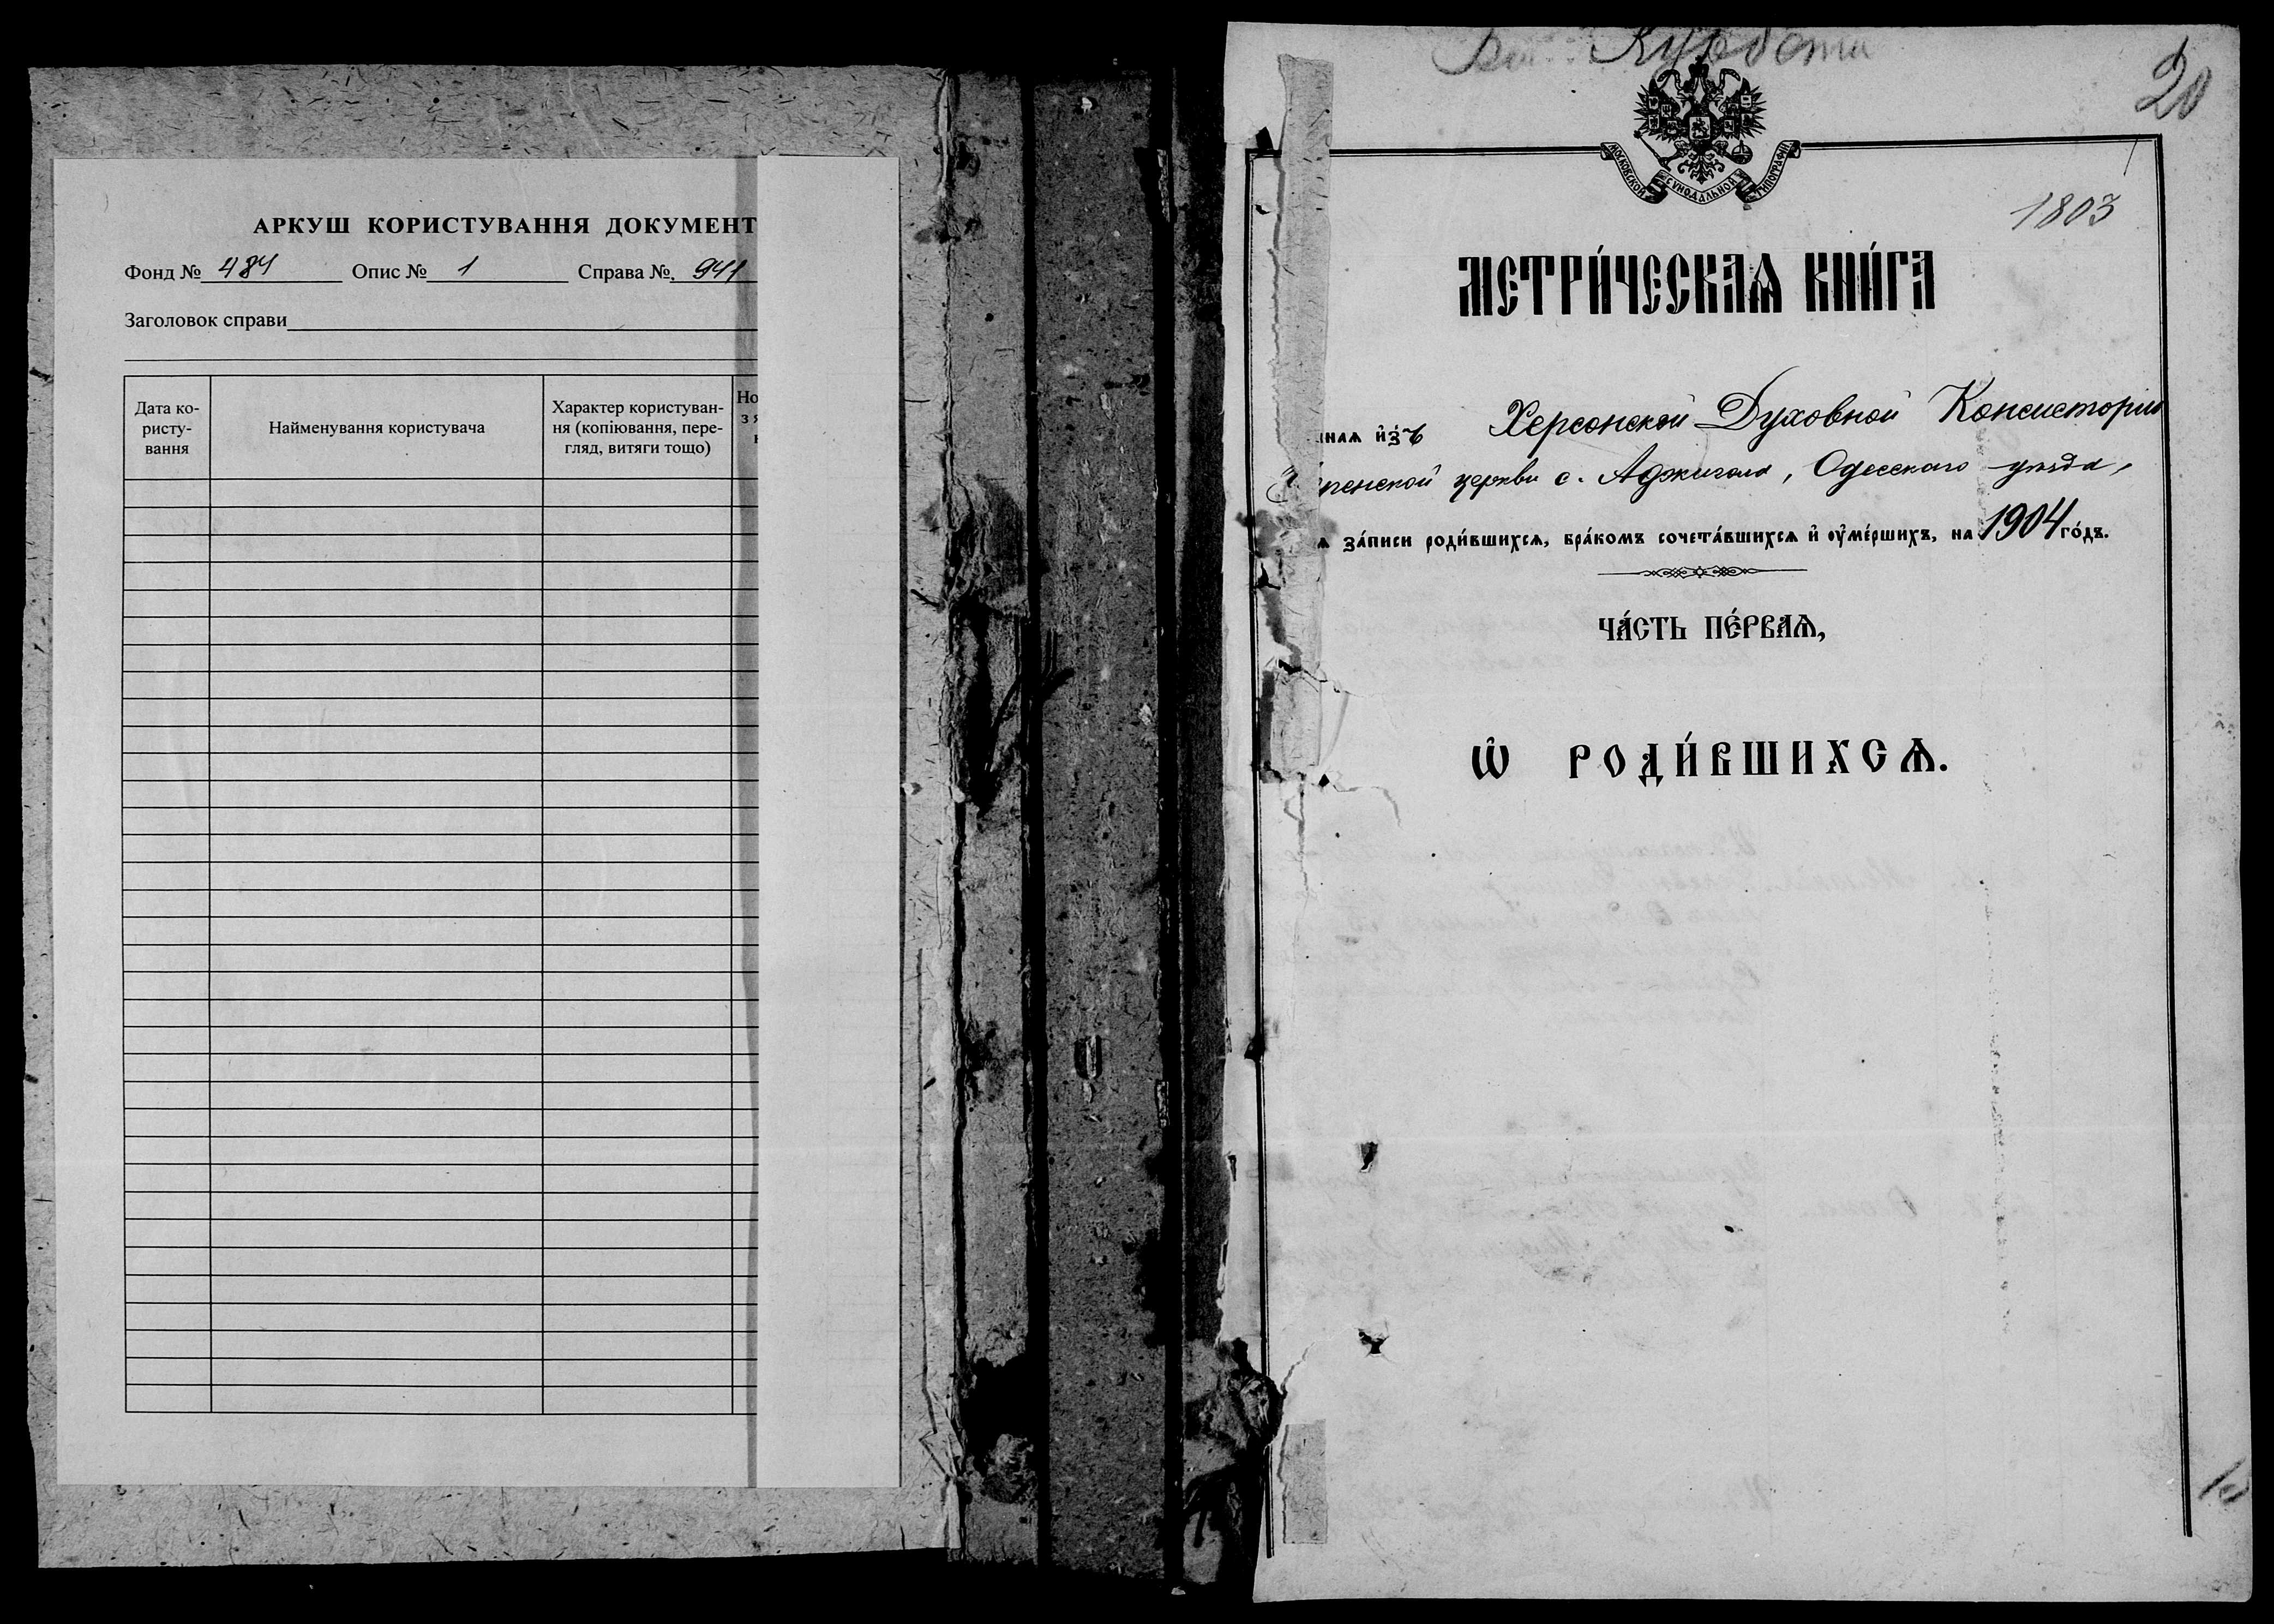 АРКУШ КОРИСТУВАННЯ ДОКУМЕНТ
Фонд № 484 Опис № 1 Справа № 941
Заголовок справи
Дата ко-
ристу-
вання
Найменування користувача
Характер користуван-
ня (копіювання, пере-
гляд, витяги тощо)
Но
з я
20
МОСКОВСКОЙ СУНОДАЛЬНОЙ ТИПОГРАФІИ
1803
МЕТРИ́ЧЕСКАѦ КНИ́ГА
нная и҆зъ Херсонской Духовной Консисторіи
пенской церкви с. Аджигола, Одесскаго уѣзда,
ѧ за́писи роди́вшихсѧ, бра́комъ сочета́вшихсѧ и҆ ᲂу҆ме́ршихъ, на 1904 го́дъ.
ЧА́СТЬ ПЕ́РВАѦ,
Ѽ РОДИ́ВШИХСѦ.